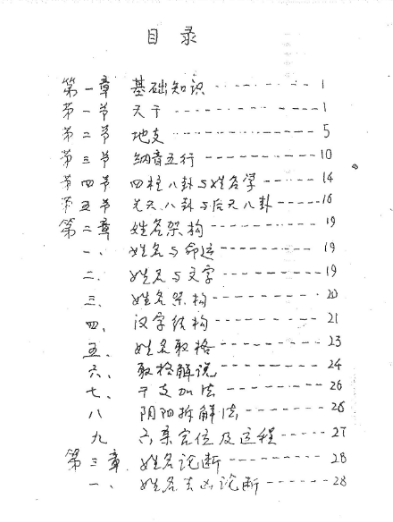 目录
第一章 基础知识 ---------- 1
第一节 天干 ---------- 1
第二节 地支 ---------- 5
第三节 纳音五行 ---------- 10
第四节 四柱八卦与姓名学 ---- 14
第五节 先天八卦与后天八卦 ---- 16
第二章 姓名架构 ---------- 19
一、 姓名与命运 ---------- 19
二、 姓名与文字 ---------- 19
三、 姓名架构 ---------- 20
四、 汉字结构 ---------- 21
五、 姓名取格 ---------- 23
六、 取格解说 ---------- 24
七、 干支加法 ---------- 26
八 阴阳拆解法 ---------- 26
九 六亲宫位及运程 ----- 27
第三章 姓名论断 ---------- 28
一、 姓名吉凶论断 ---- 28